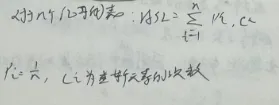 对于n个(不同)的表: ASL = \sum_{i=1}^{n} P_i . C_i
P_i = \frac{1}{n}, C_i 为查找元素的次数